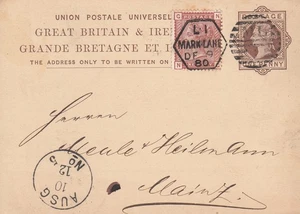 UNION POSTALE UNIVERSE
GREAT BRITAIN & IRE
GRANDE BRETAGNE ET I
THE ADDRESS ONLY TO BE WRITTEN ON
L1
MARK-LANE
DE 9
80
PENNY
Herren
Meule & Heilmann
Mainz
AUSG
10
12 5
No